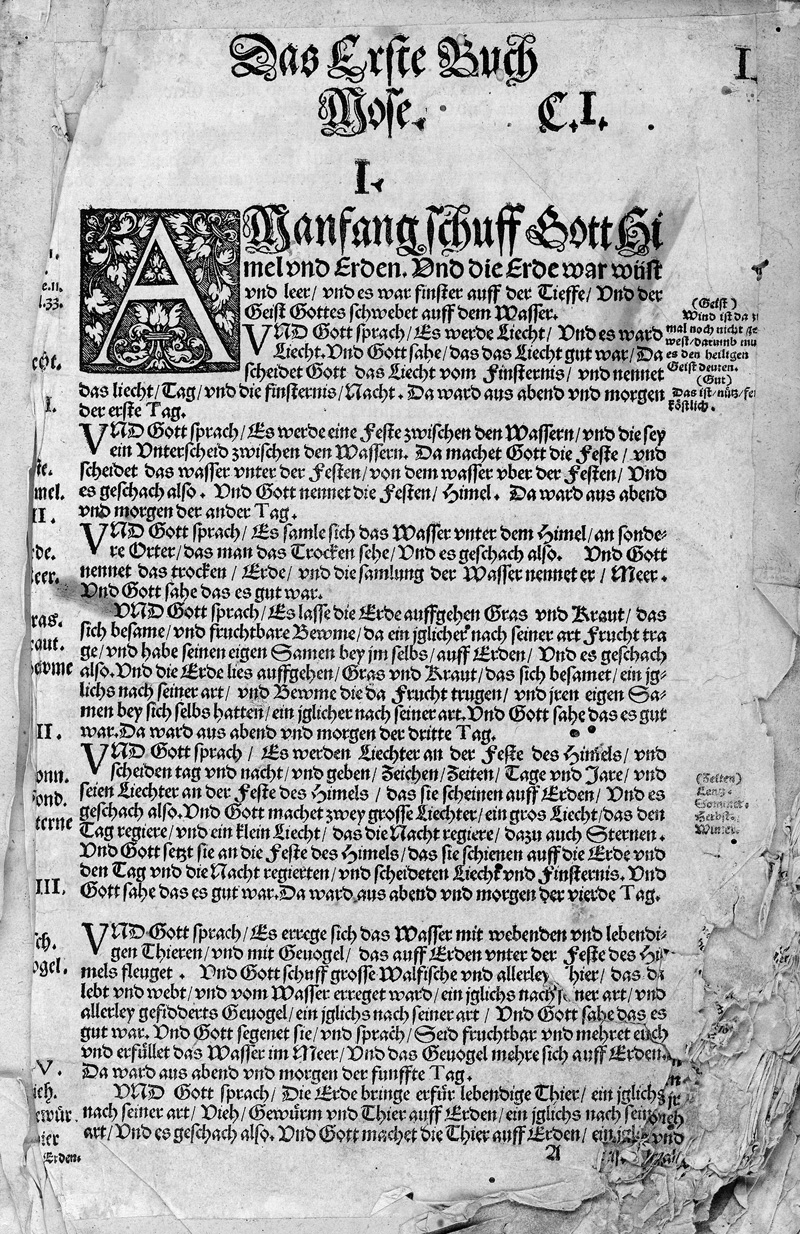 Das Erste Buch
I.
Mose.
C.I.
I.
AManfang schuff Gott Hi
mel vnd Erden. Vnd die Erde war wüst
vnd leer/ vnd es war finster auff der Tieffe/ Vnd der
Geist Gottes schwebet auff dem Wasser.
VND Gott sprach/ Es werde Liecht/ Vnd es ward
Liecht. Vnd Gott sahe/ das das Liecht gut war/ Da
scheidet Gott das Liecht vom Finsternis/ vnd nennet
das liecht/ Tag/ vnd die finsternis/ Nacht. Da ward aus abend vnd morgen
der erste Tag.
VND Gott sprach/ Es werde eine Feste zwischen den Wassern/ vnd die sey
ein Vnterscheid zwischen den Wassern. Da machet Gott die Feste/ vnd
scheidet das wasser vnter der Festen/ von dem wasser vber der Festen/ Vnd
es geschach also. Vnd Gott nennet die Festen/ Himel. Da ward aus abend
vnd morgen der ander Tag.
VND Gott sprach/ Es samle sich das Wasser vnter dem Himel/ an sonde-
re Orter/ das man das Trocken sehe/ Vnd es geschach also. Vnd Gott
nennet das trocken/ Erde/ vnd die samlung der Wasser nennet er/ Meer.
Vnd Gott sahe das es gut war.
VND Gott sprach/ Es lasse die Erde auffgehen Gras vnd Kraut/ das
sich besame/ vnd fruchtbare Bewme/ da ein jglicher nach seiner art Frucht tra
ge/ vnd habe seinen eigen Samen bey jm selbs/ auff Erden/ Vnd es geschach
also. Vnd die Erde lies auffgehen/ Gras vnd Kraut/ das sich besamet/ ein jg-
lichs nach seiner art/ vnd Bewme die da Frucht trugen/ vnd jren eigen Sa-
men bey sich selbs hatten/ ein jglicher nach seiner art. Vnd Gott sahe das es gut
war. Da ward aus abend vnd morgen der dritte Tag.
VND Gott sprach/ Es werden Liechter an der Feste des Himels/ vnd
scheiden tag vnd nacht/ vnd geben/ Zeichen/ Zeiten/ Tage vnd Jare/ vnd
seien Liechter an der Feste des Himels/ das sie scheinen auff Erden/ Vnd es
geschach also. Vnd Gott machet zwey grosse Liechter/ ein gros Liecht/ das den
Tag regiere/ vnd ein klein Liecht/ das die Nacht regiere/ dazu auch Sternen.
Vnd Gott setzt sie an die Feste des Himels/ das sie schienen auff die Erde vnd
den Tag vnd die Nacht regierten/ vnd scheideten Liecht vnd Finsternis. Vnd
Gott sahe das es gut war. Da ward aus abend vnd morgen der vierde Tag.
VND Gott sprach/ Es errege sich das Wasser mit webenden vnd lebendi-
gen Thieren/ vnd mit Geuogel/ das auff Erden vnter der Feste des Hi
mels fleuget. Vnd Gott schuff grosse Walfische vnd allerley hier/ das da
lebt vnd webt/ vnd vom Wasser erreget ward/ ein jglichs nach ner art/ vnd
allerley gefidderts Geuogel/ ein jglichs nach seiner art/ Vnd Gott sahe das es
gut war. Vnd Gott segenet sie/ vnd sprach/ Seid fruchtbar vnd mehret euch
vnd erfüllet das Wasser im Meer/ Vnd das Geuogel mehre sich auff Erden.
Da ward aus abend vnd morgen der funffte Tag.
VND Gott sprach/ Die Erde bringe erfür lebendige Thier/ ein jglichs
nach seiner art/ Vieh/ Gewürm vnd Thier auff Erden/ ein jglichs nach
art/ Vnd es geschach also. Vnd Gott machet die Thier auff Erden/
A
(Geist)
Wind ist da
mal noch nicht ge
west/ darumb
es den heiligen
Geist deuten.
(Gut)
Das ist/ nütz/
köstlich.
(Zeiten)
Lentz.
Sommer.
Herbst.
Winter.
I.
mel.
II.
de.
eer.
ras.
aut.
ewme
II.
onn.
ond.
terne
III.
ogel.
V.
ieh.
ewür.
ier
Erden.